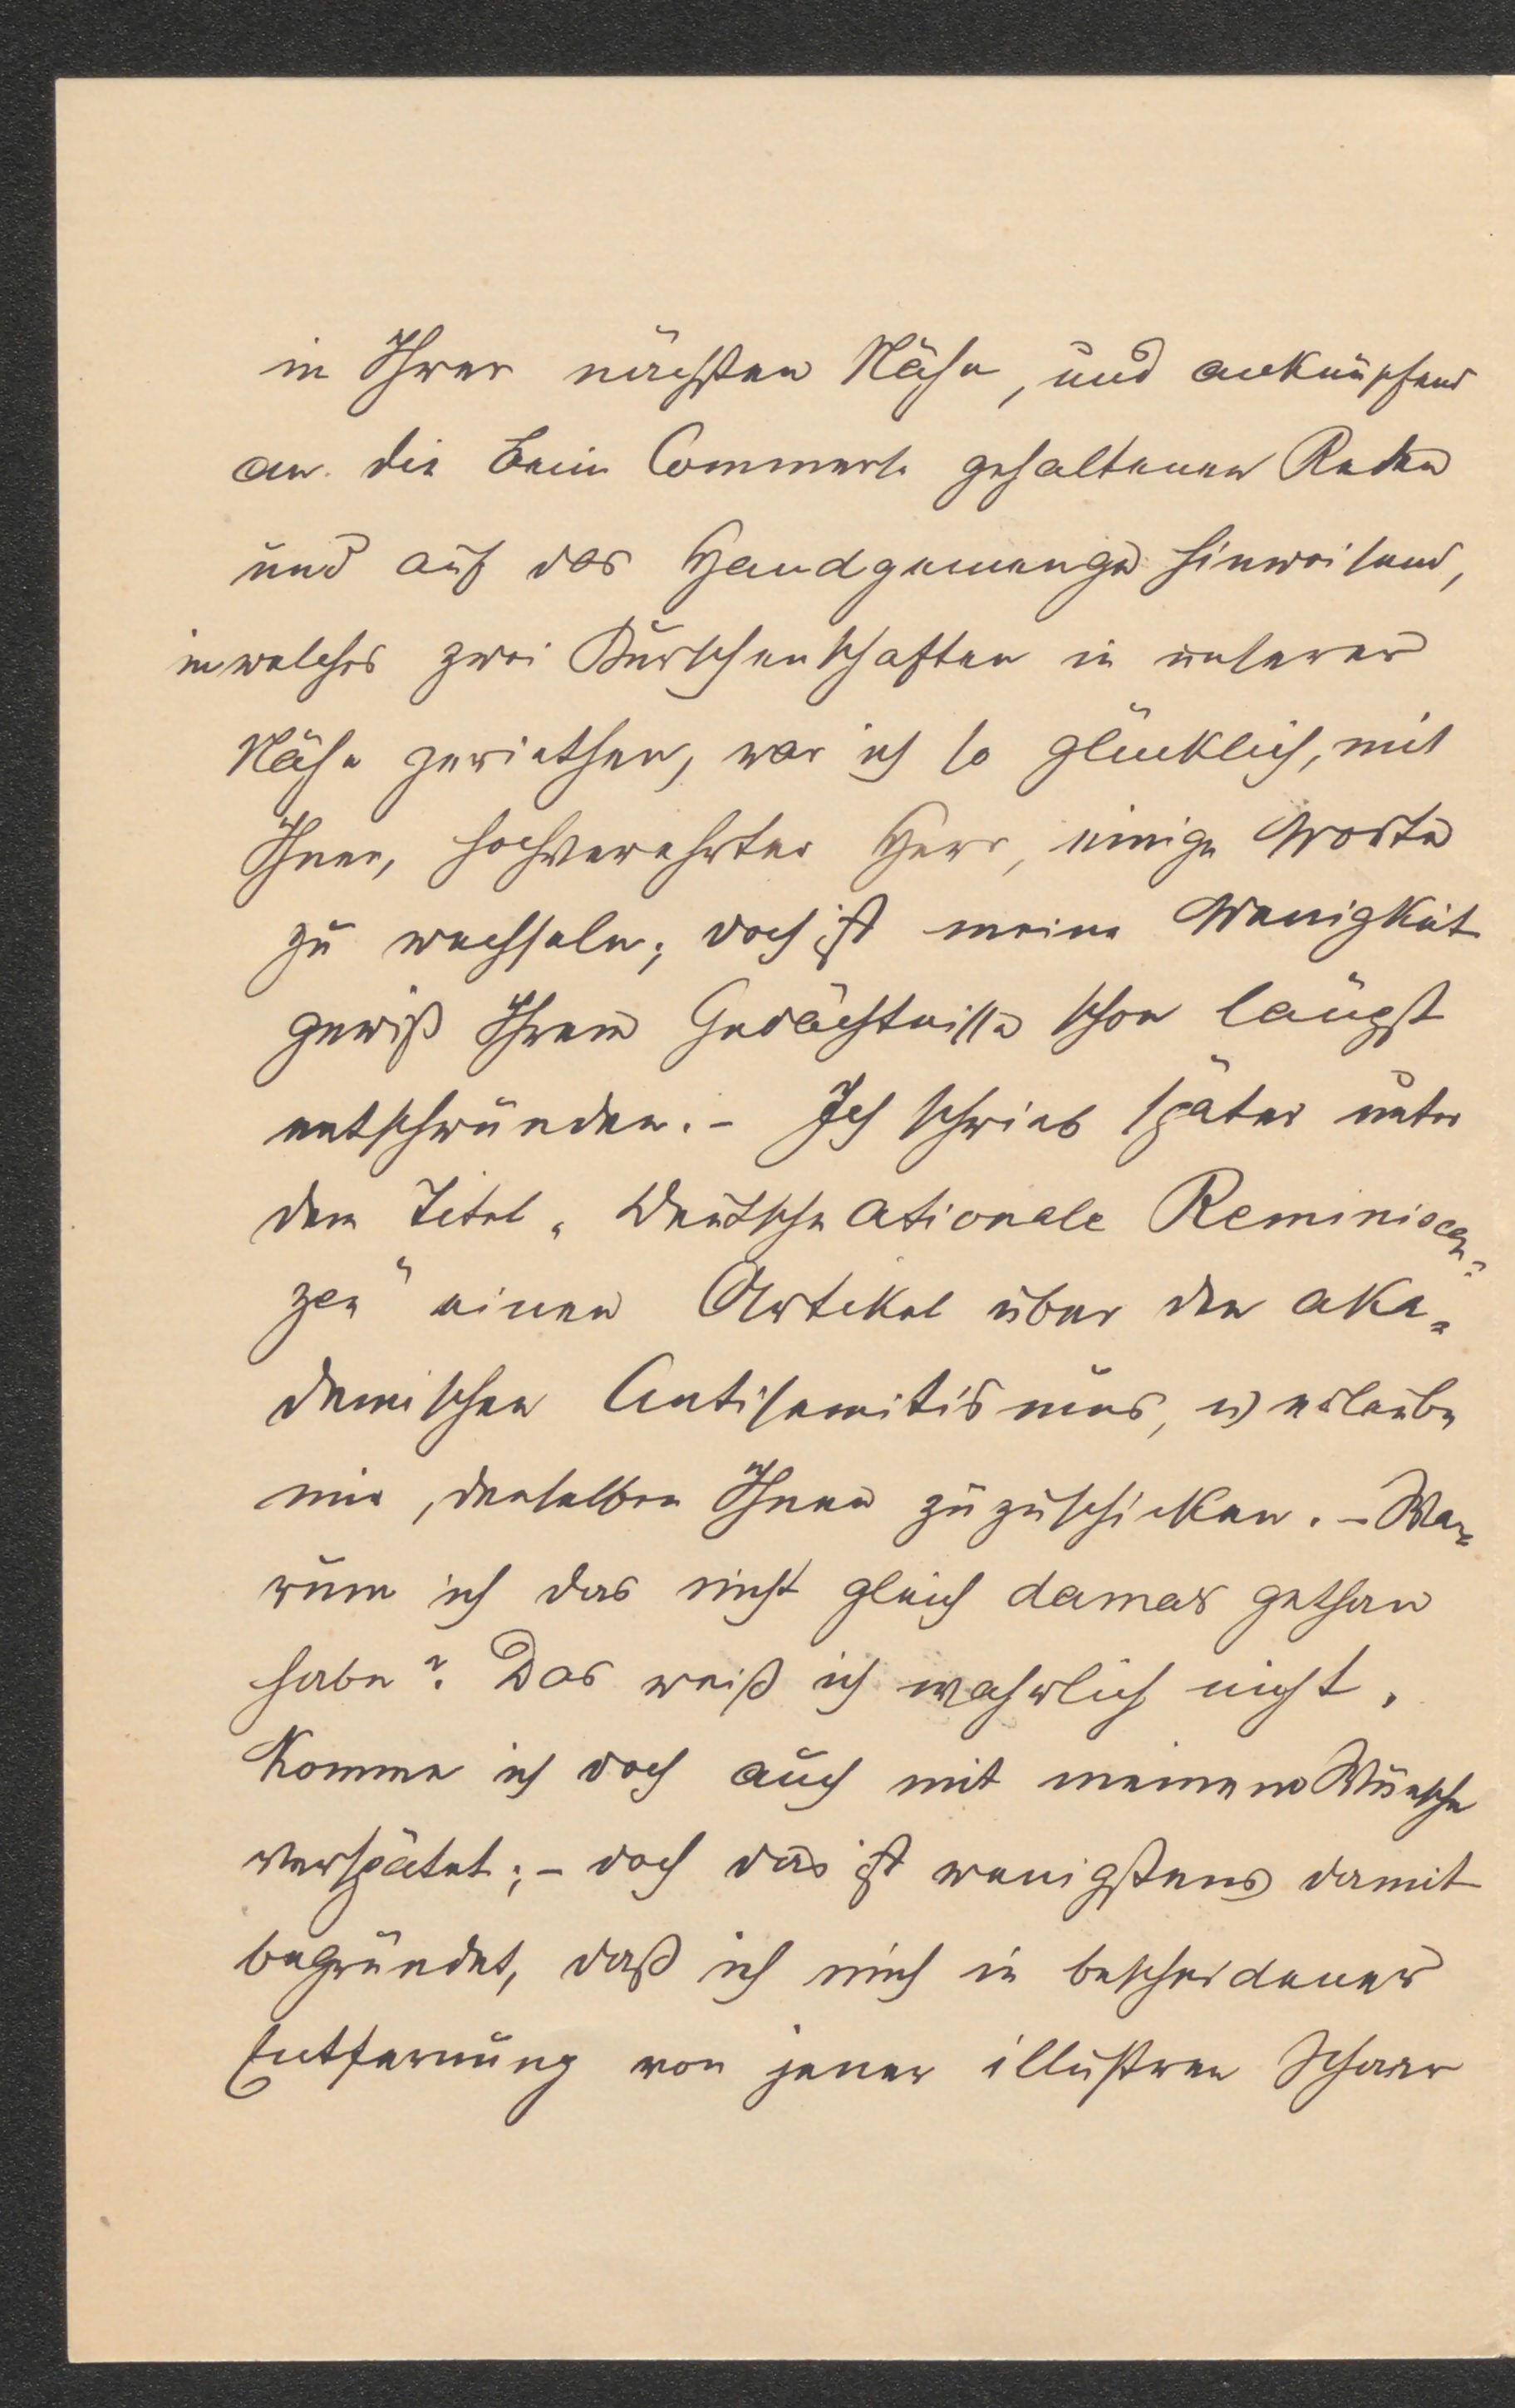 in Ihrer nächsten Nähe, und anknüpfend
an die beim Commerse gehaltenen Reden
und auf das Handgemenge hinweisend,
in welches zwei Burschenschaften in unserer
Nähe geriethen, war ich so glücklich, mit
Ihnen, hochverehrter Herr, einige Worte
zu wechseln; doch ist meine Wenigkeit
gewiß Ihrem Gedächtnisse schon längst
entschwunden. – Ich schrieb später unter
dem Titel „Deutschnationale Reminiscen-
zen“ einen Artikel über den aka-
demischen Antisemitismus, u erlaube
mir, denselben Ihnen zuzuschicken. – Wa-
rum ich das nicht gleich damals gethan
habe? Das weiß ich wahrlich nicht.
Komme ich doch auch mit meinem Wunsche
verspätet; – doch das ist wenigstens damit
begründet, daß ich mich in bescheidener
Entfernung von jener illustren Schaar